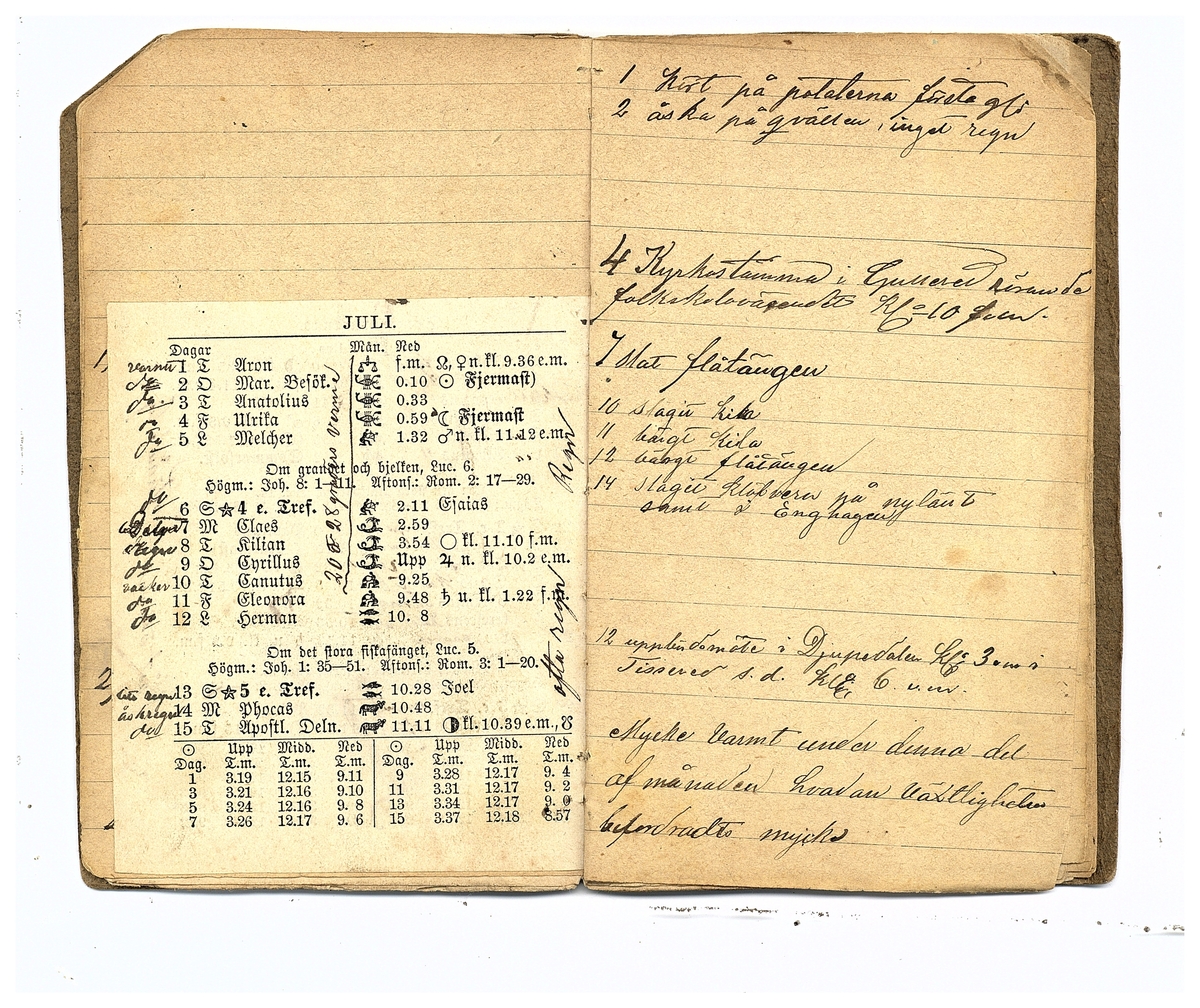 JULI.
Dagar Mån. Ned
varmt 1 T Aron f.m. ☊, ♀ n. kl. 9.36 e.m.
2 O Mar. Besök. 0.10 ☉ Fjermast)
do. 3 T Anatolius 0.33
do 4 F Ulrika 0.59 ☾ Fjermast
do 5 L Melcher 1.32 ♂ n. kl. 11.12 e.m.
Om grandet och bjelken, Luc. 6.
Högm.: Joh. 8: 1—11. Aftons.: Rom. 2: 17—29.
do 6 S ☆ 4 e. Tref. 2.11 Esaias
7 M Claes 2.59
regn 8 T Kilian 3.54 ○ kl. 11.10 f.m.
do 9 O Cyrillus Upp ♃ n. kl. 10.2 e.m.
vacker 10 T Canutus 9.25
do 11 F Eleonora 9.48 ♄ u. kl. 1.22 f.m.
do 12 L Herman 10. 8
Om det stora fiskafänget, Luc. 5.
Högm.: Joh. 1: 35—51. Aftons.: Rom. 3: 1—20.
lite regn 13 S ☆ 5 e. Tref. 10.28 Joel
åskregn 14 M Phocas 10.48
do 15 T Apostl. Deln. 11.11 ◑ kl. 10.39 e.m., ☋
20 a 28 graders värme
Regn
ofta regn
☉ Upp Midd. Ned ☉ Upp Midd. Ned
Dag. T.m. T.m. T.m. Dag. T.m. T.m. T.m.
1 3.19 12.15 9.11 9 3.28 12.17 9. 4
3 3.21 12.16 9.10 11 3.31 12.17 9. 2
5 3.24 12.16 9. 8 13 3.34 12.17 9. 0
7 3.26 12.17 9. 6 15 3.37 12.18 8.57
1 på potaterna
2 åska på qvällen, inget regn
4 Kyrkostämma i Gullered rörande
folkskolovärendet Kl 10 f.m.
7 slat flatängen
10 slagit kila
11 bärgt Kila
12 bärgt flatängen
14 slagit klöfvern på nylänt
samt i Enghagen
12 uppbudsmöte i Djupedalen Kl. 3 e.m i
Tissered s.d. Kl. 6 e.m.
Mycke Varmt under denna del
af månaden hvadan Växtligheten
befordrades mycke